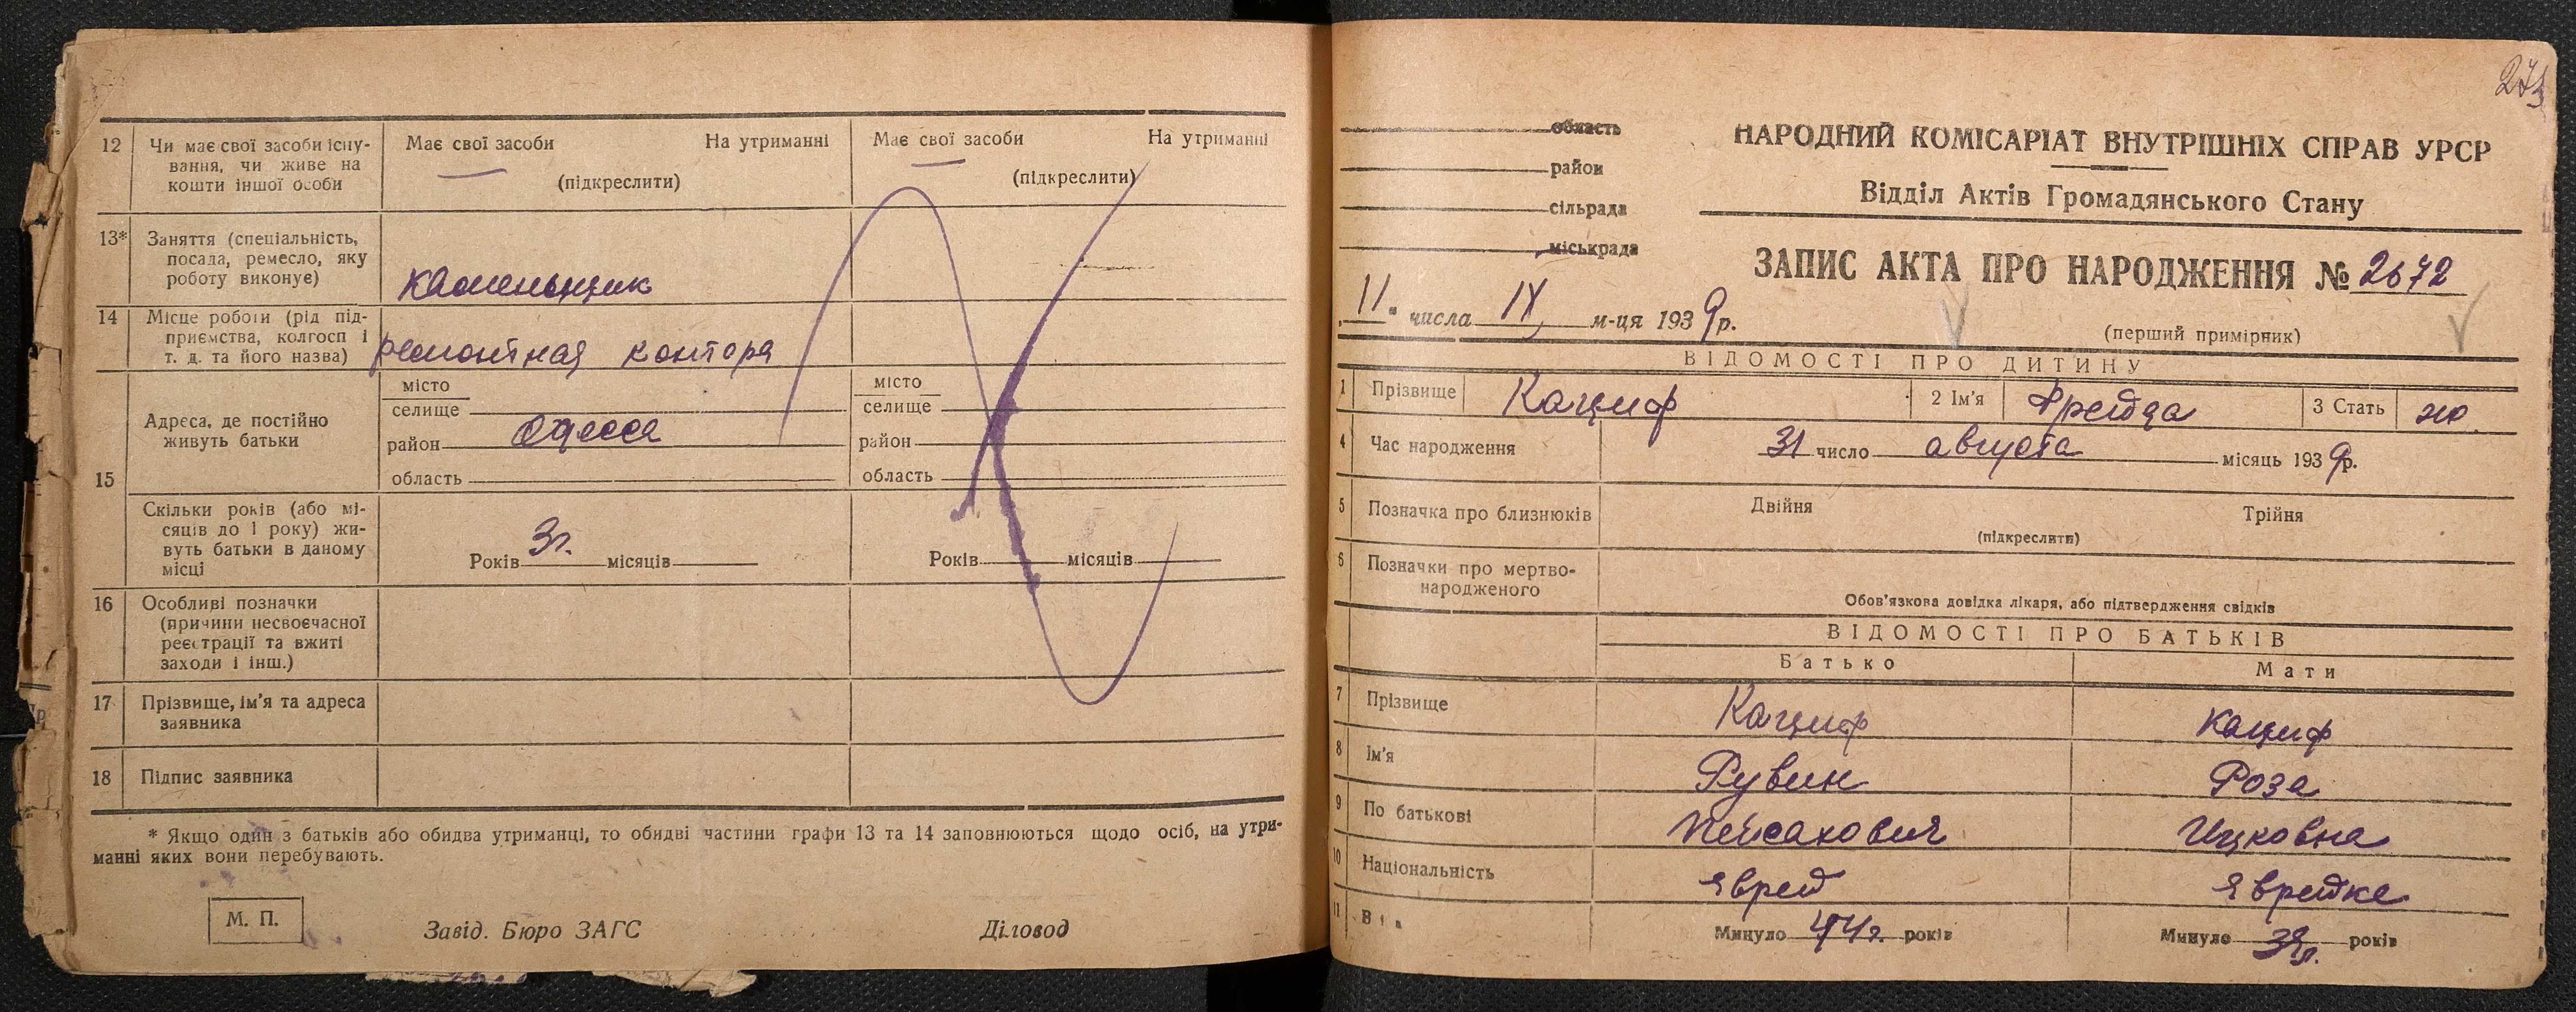 12 Чи має свої засоби існу-
вання, чи живе на
кошти іншої особи
Має свої засоби На утриманні
(підкреслити)
Має свої засоби На утриманні
(підкреслити)
13* Заняття (спеціальність,
посада, ремесло, яку
роботу виконує)
каменьщик
14 Місце роботи (рід під-
приємства, колгосп і
т. д. та його назва)
ремонтная контора
15 Адреса, де постійно
живуть батьки
місто
селище
район Одесса
область
місто
селище
район
область
Скільки років (або мі-
сяців до 1 року) жи-
вуть батьки в даному
місці
Років 3г. місяців
Років місяців
16 Особливі позначки
(причини несвоєчасної
реєстрації та вжиті
заходи і інш.)
17 Прізвище, ім'я та адреса
заявника
18 Підпис заявника
* Якщо один з батьків або обидва утриманці, то обидві частини графи 13 та 14 заповнюються щодо осіб, на утри-
манні яких вони перебувають.
М. П.
Завід. Бюро ЗАГС Діловод
273
область
район
сільрада
міськрада
НАРОДНИЙ КОМІСАРІАТ ВНУТРІШНІХ СПРАВ УРСР
Відділ Актів Громадянського Стану
ЗАПИС АКТА ПРО НАРОДЖЕННЯ № 2672
„11“ числа IX м-ця 1939р.
(перший примірник)
ВІДОМОСТІ ПРО ДИТИНУ
1 Прізвище Кациф 2 Ім'я Фрейда 3 Стать жо
4 Час народження 31 число августа місяць 1939р.
5 Позначка про близнюків Двійня Трійня
(підкреслити)
6 Позначки про мертво-
народженого
Обов'язкова довідка лікаря, або підтвердження свідків
ВІДОМОСТІ ПРО БАТЬКІВ
Батько Мати
7 Прізвище Кациф Кациф
8 Ім'я Рувин Роза
9 По батькові Пейсахович Ицковна
10 Національність Яврей Яврейка
11 Вік Минуло 44г. років Минуло 39г. років